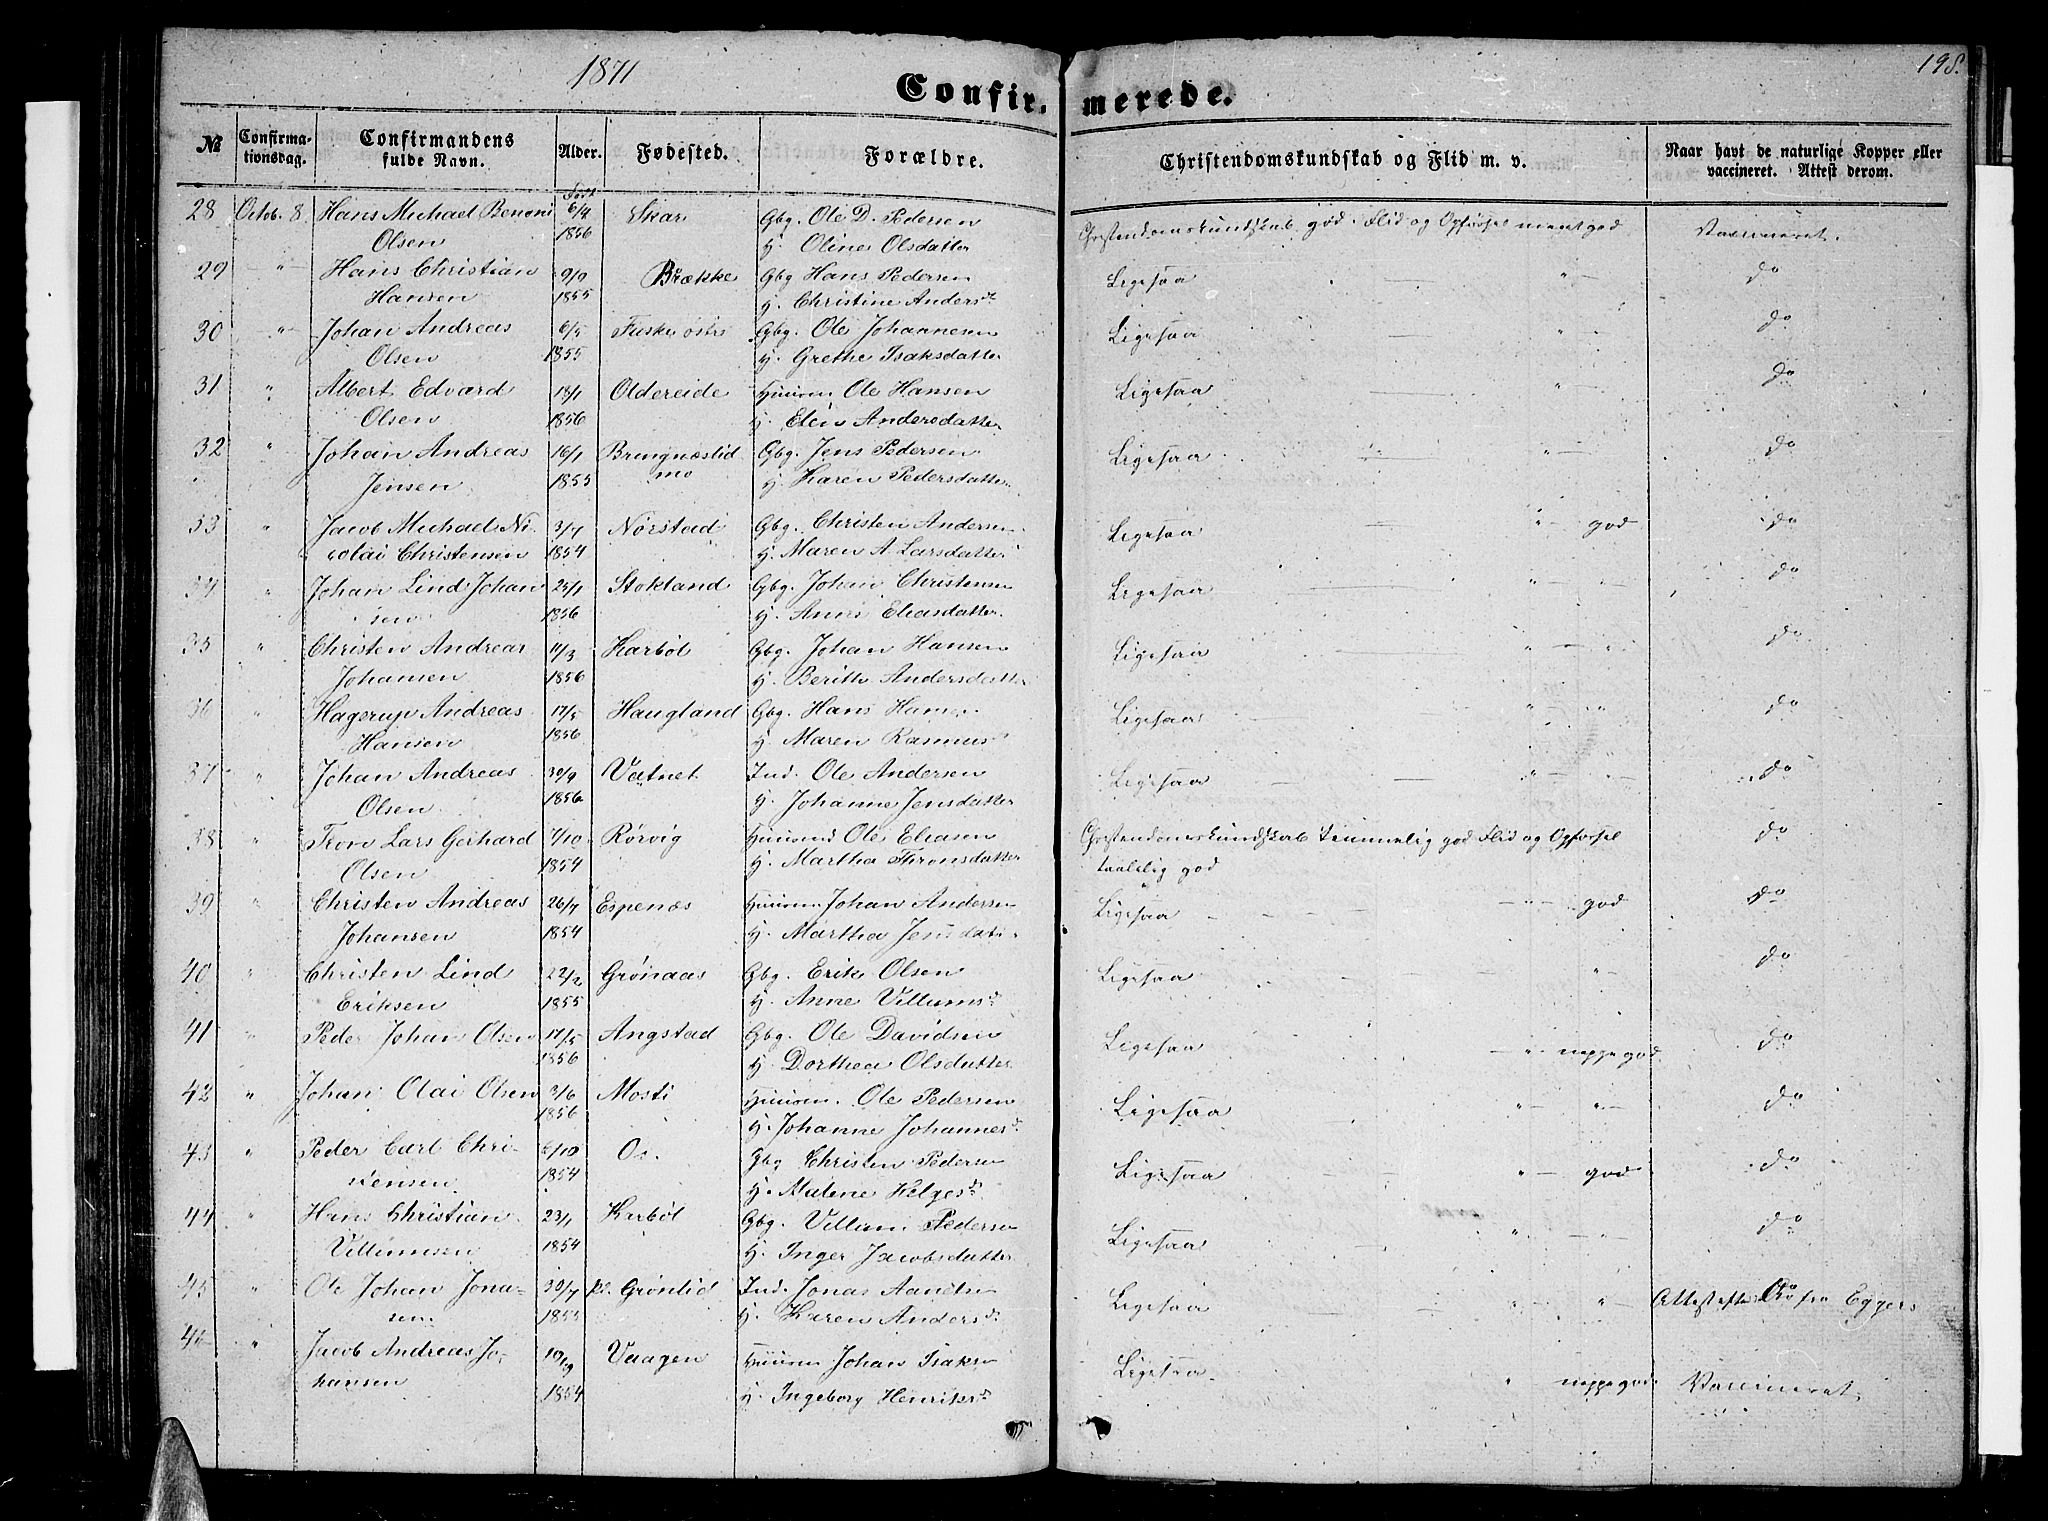 1871
198.
Confir. merede.
№ Confirma-tionsdag. Confirmandens fulde Navn. Alder. Fødested. Forældre. Christendomskundskab og Flid m. v. Naar havt de naturlige Kopper eller vaccineret. Attest derom.
28 Octob. 8. Hans Michael Benoni 6/4 Skar Gbg. Ole D. Pedersen Christendomskundskab god. Flid og Opførsel meget god Vaccineret.
Olsen 1856 H. Oline Olsdatter
29 " Hans Christian 9/9 Brække Gbg Hans Pedersen Ligesaa " do
Hansen 1855 H. Christine Andersd.
30 " Johan Andreas 6/5 Fuske østre Gbg. Ole Johannesen Ligesaa " do
Olsen 1855 H. Grethe Isaksdatter
31 " Albert Edvard 18/1 Oldereide Huusm Ole Hansen Ligesaa " do
Olsen 1856 H. Elen Andersdatter
32 " Johan Andreas 16/1 Gbg. Jens Pedersen Ligesaa " do
Jensen 1855 mo H. Karen Pedersdatter
33 " Jacob Michael Ni- 3/7 Nørstad Gbg. Christen Andersen Ligesaa " god do
colai Christensen 1854 H. Maren A Larsdatter
34 " Johan Lind Johan 25/1 Stokland Gbg. Johan Christensen Ligesaa " " do
sen 1856 H. Anne Eliasdatter
35 " Christen Andreas 11/3 Karbøl Gbg. Johan Hansen Ligesaa " " do
Johansen 1856 H. Berithe Andersdatter
36 " Hagerup Andreas 17/5 Haugland Gbg. Hans Hansen Ligesaa " " do
Hansen 1856 H. Maren Rasmusd
37 " Johan Andreas 30/9 Vatnet Ind. Ole Andersen Ligesaa " " do
Olsen 1856 H. Johanne Jensdatter
38 " Tron Lars Gerhard 7/10 Rørvig Huusmd Ole Eliasen Christendomskundskab temmelig god Flid og Opførsel do
Olsen 1854 H. Martha Thronsdatter taalelig god
39 " Christen Andreas 26/7 Espenæs Huusm Johan Andersen Ligesaa " god do
Johansen 1854 H. Martha Jensdatt.
40 " Christen Lind 22/2 Grönaas Gbg. Erik Olsen Ligesaa " do
Eriksen 1855 H. Anne Villumsd.
41 " Peder Johan Olsen 17/5 Angstad Gbg. Ole Davidsen Ligesaa " neppe god do
1856 H. Dorthea Olsdatter
42 " Johan Olai Olsen 3/6 Mosti Huusm. Ole Pedersen Ligesaa " " do
1856 H. Johanne Johannesd.
43 " Peder Carl Chri- 6/10 Os. Gbg Christen Pedersen Ligesaa " god do
stensen 1854 H. Malene Helgesd.
44 " Hans Christian 23/1 Karbøl Gbg. Villum Pedersen Ligesaa " " do
Villumsen 1854 H. Inger Jacobsdatter
45 " Ole Johan Jona- 30/7 Grönlid Ind. Jonas Ligesaa " " Attest fra Eggers
sen. 1855 H. Karen Andersd.
46 " Jacob Andreas Jo- 10/9 Vaagen Huusm Johan Isaks Ligesaa " neppe god Vaccineret
hansen 1854 H. Ingeborg Henriksd.